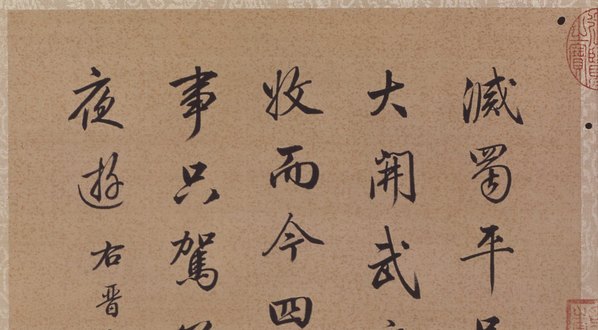 滅蜀平
大開武
收而今四
事只駕
夜遊
右晉